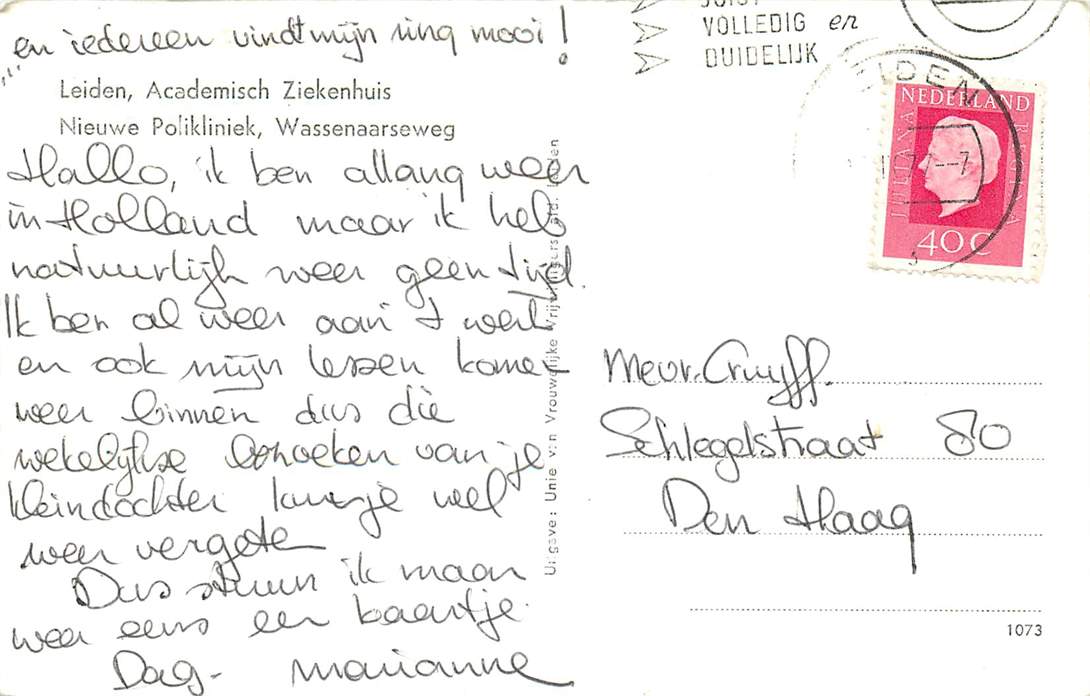 en iedereen vindt mijn ring mooi!
Leiden, Academisch Ziekenhuis
Nieuwe Polikliniek, Wassenaarseweg
Hallo, ik ben allang weer
in Holland maar ik heb
natuurlijk weer geen tijd.
Ik ben al weer aan 't werk
en ook mijn lessen komen
weer binnen dus die
wekelijkse bezoeken van je
kleindochter kun je wel
weer vergeten
Dus stuur ik maar
weer eens een kaartje.
Dag- Marianne
Uitgave: Unie van Vrouwelijke Vrijwilligers afd. Leiden
VOLLEDIG en
DUIDELIJK
NEDERLAND
JULIANA REGINA
40 C
Mevr. Cruyff.
Schlegelstraat 80
Den Haag
1073